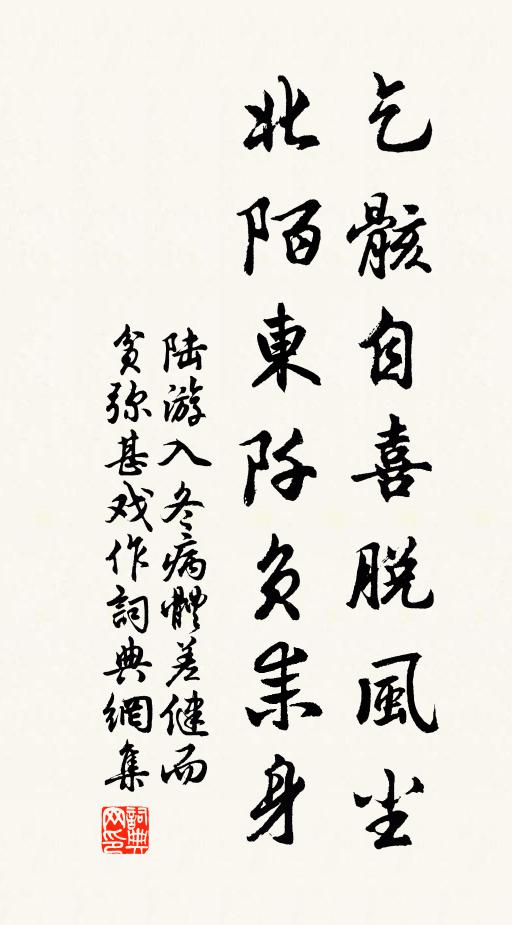 乞骸自喜脱風尘
北陌東阡负耒身
陆游入冬病體差健而
貧弥甚戏作詞典網集
詞典网印